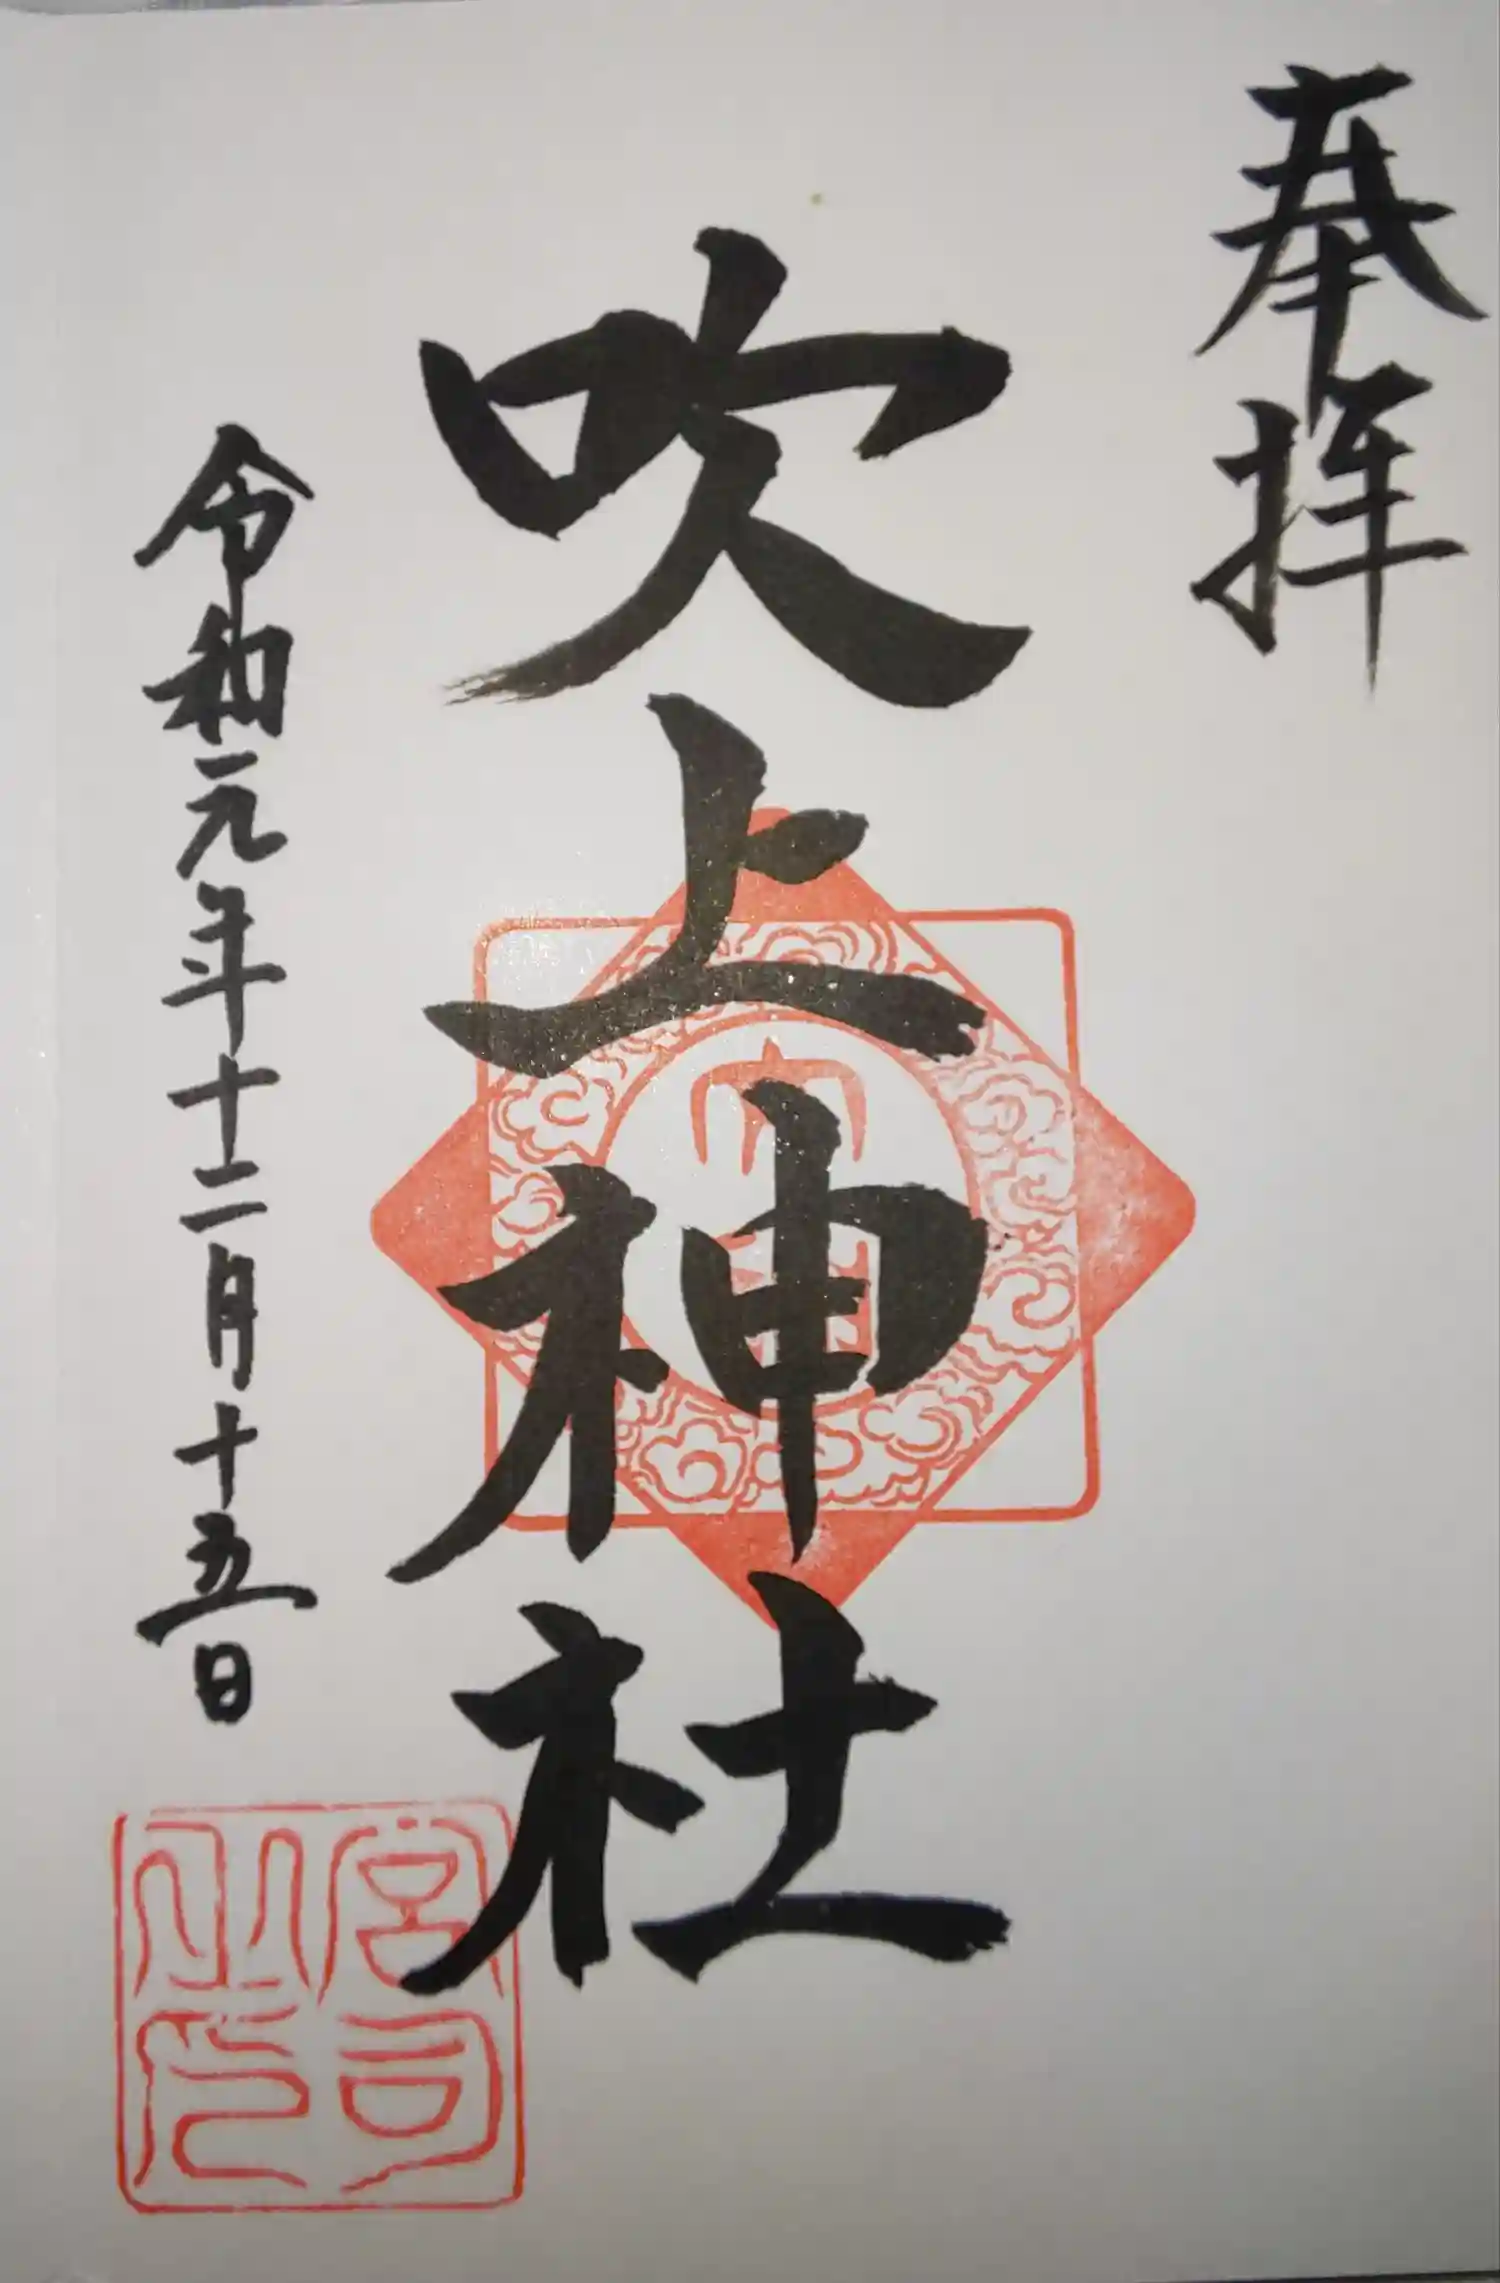 奉拝
吹上神社
令和元年十二月十五日
宮司之印